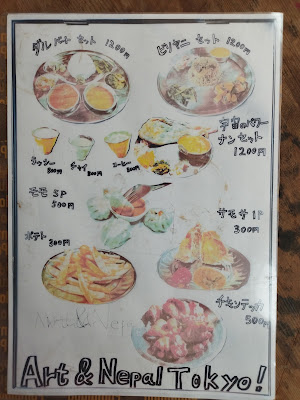 ダルバート セット 1200円
ビリヤニ セット 1200円
宇宙のバター
ナンセット
1200円
ラッシー
300円
チャイ
300円
コーヒー
300円
モモ 5P
500円
サモサ 1P
300円
ポテト
300円
チキンテッカ
500円
Art & Nepal Tokyo!